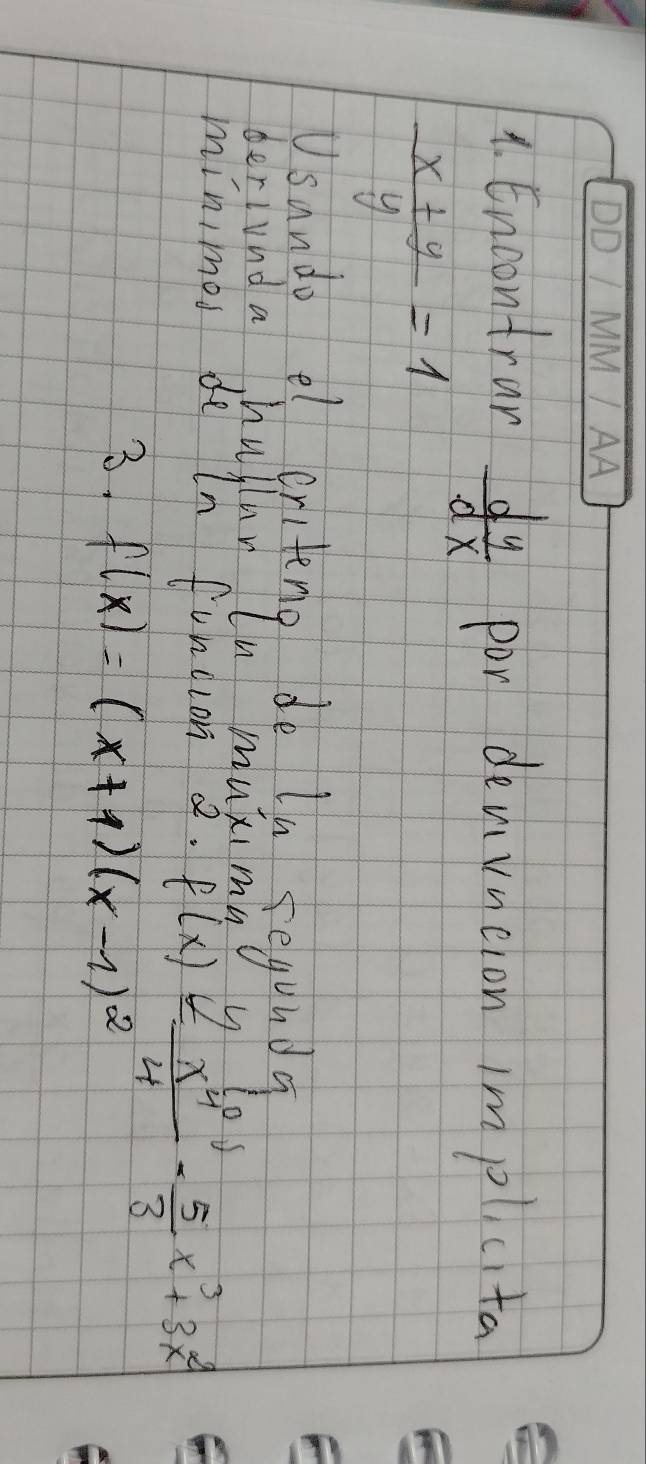 DD / MM / AA
1. Encontrar dy/dx por derivacion implicita
x+y/y = 1
Usando el criterio de la segunda
derivada hallar la máxima y los
mínimos de la función 2. f(x) = x⁴/4 - 5/3 x³ + 3x²
3. f(x) = (x+1)(x-1)²